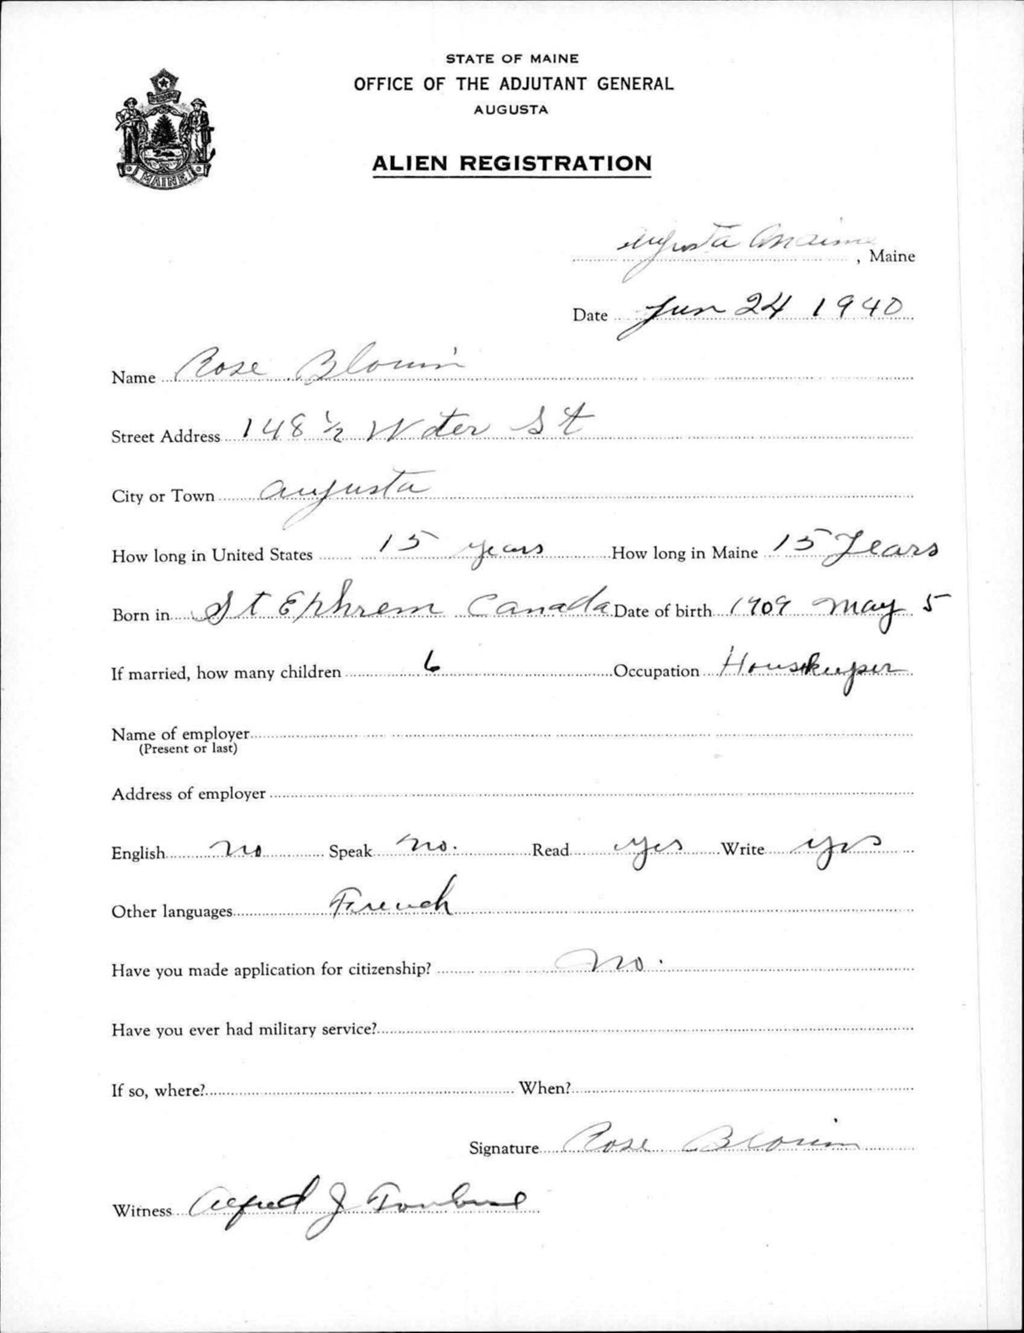 STATE OF MAINE
OFFICE OF THE ADJUTANT GENERAL
AUGUSTA
MAINE
ALIEN REGISTRATION
Augusta Maine, Maine
Date Jun 24 1940
Name Rose Blouin
Street Address 148 ½ Water St
City or Town Augusta
How long in United States 15 years How long in Maine 15 Years
Born in St Ephrem Canada Date of birth 1909 May 5
If married, how many children 6 Occupation Housekeeper
Name of employer
(Present or last)
Address of employer
English No Speak No. Read Yes Write Yes
Other languages French
Have you made application for citizenship? No.
Have you ever had military service?
If so, where? When?
Signature Rose Blouin
Witness Alfred J